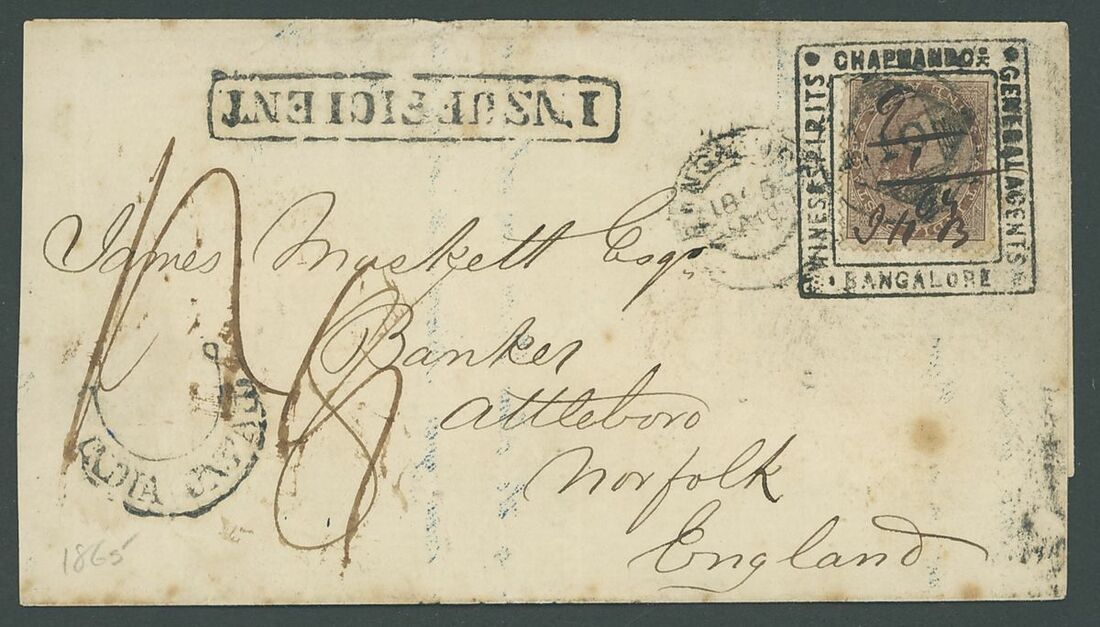 INSUFFICIENT
CHAPMAN & CO
GENERAL AGENTS
BANGALORE
WINES & SPIRITS
BANGALORE
James Muskett Esqr
Banker
Attleboro
Norfolk
England
INDIA UNPAID
1865